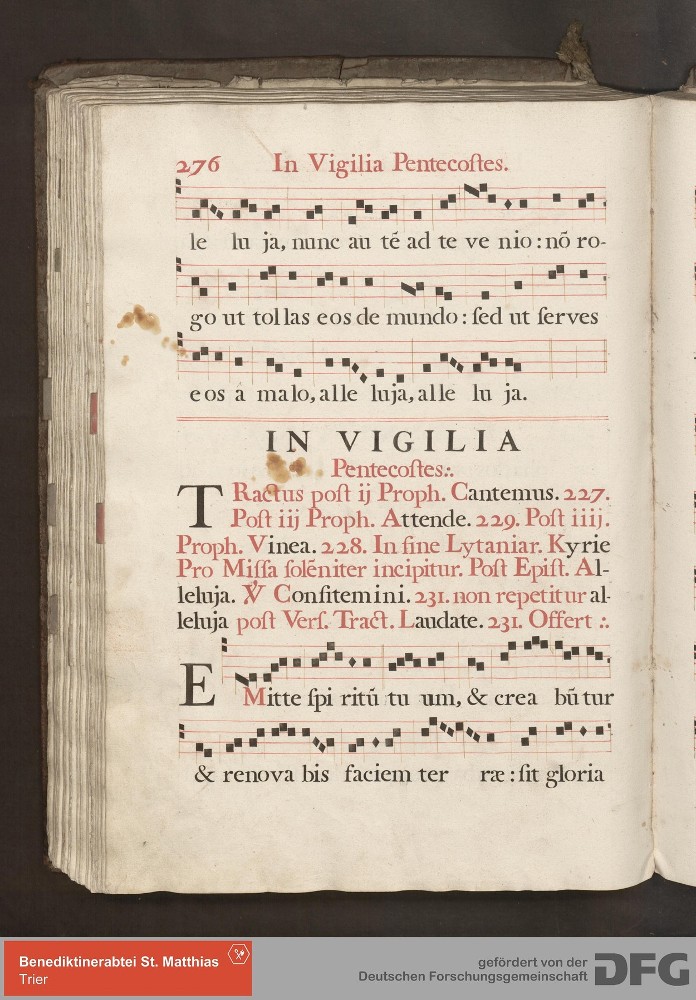 276 In Vigilia Pentecoſtes.
le lu ja, nunc au tē ad te ve nio : nō ro-
go ut tol las e os de mundo : ſed ut ſerves
e os a malo, alle luja, alle lu ja.
IN VIGILIA
Pentecoſtes.:.
TRactus poſt ij Proph. Cantemus. 227.
Poſt iij Proph. Attende. 229. Poſt iiij.
Proph. Vinea. 228. In fine Lytaniar. Kyrie
Pro Miſſa ſolēniter incipitur. Poſt Epiſt. Al-
leluja. ℣ Confitemini. 231. non repetitur al-
leluja poſt Verſ. Tract. Laudate. 231. Offert .:.
EMitte ſpi ritū tu um, & crea bū tur
& renova bis faciem ter ræ : ſit gloria
Benediktinerabtei St. Matthias
Trier
gefördert von der
Deutschen Forschungsgemeinschaft
DFG